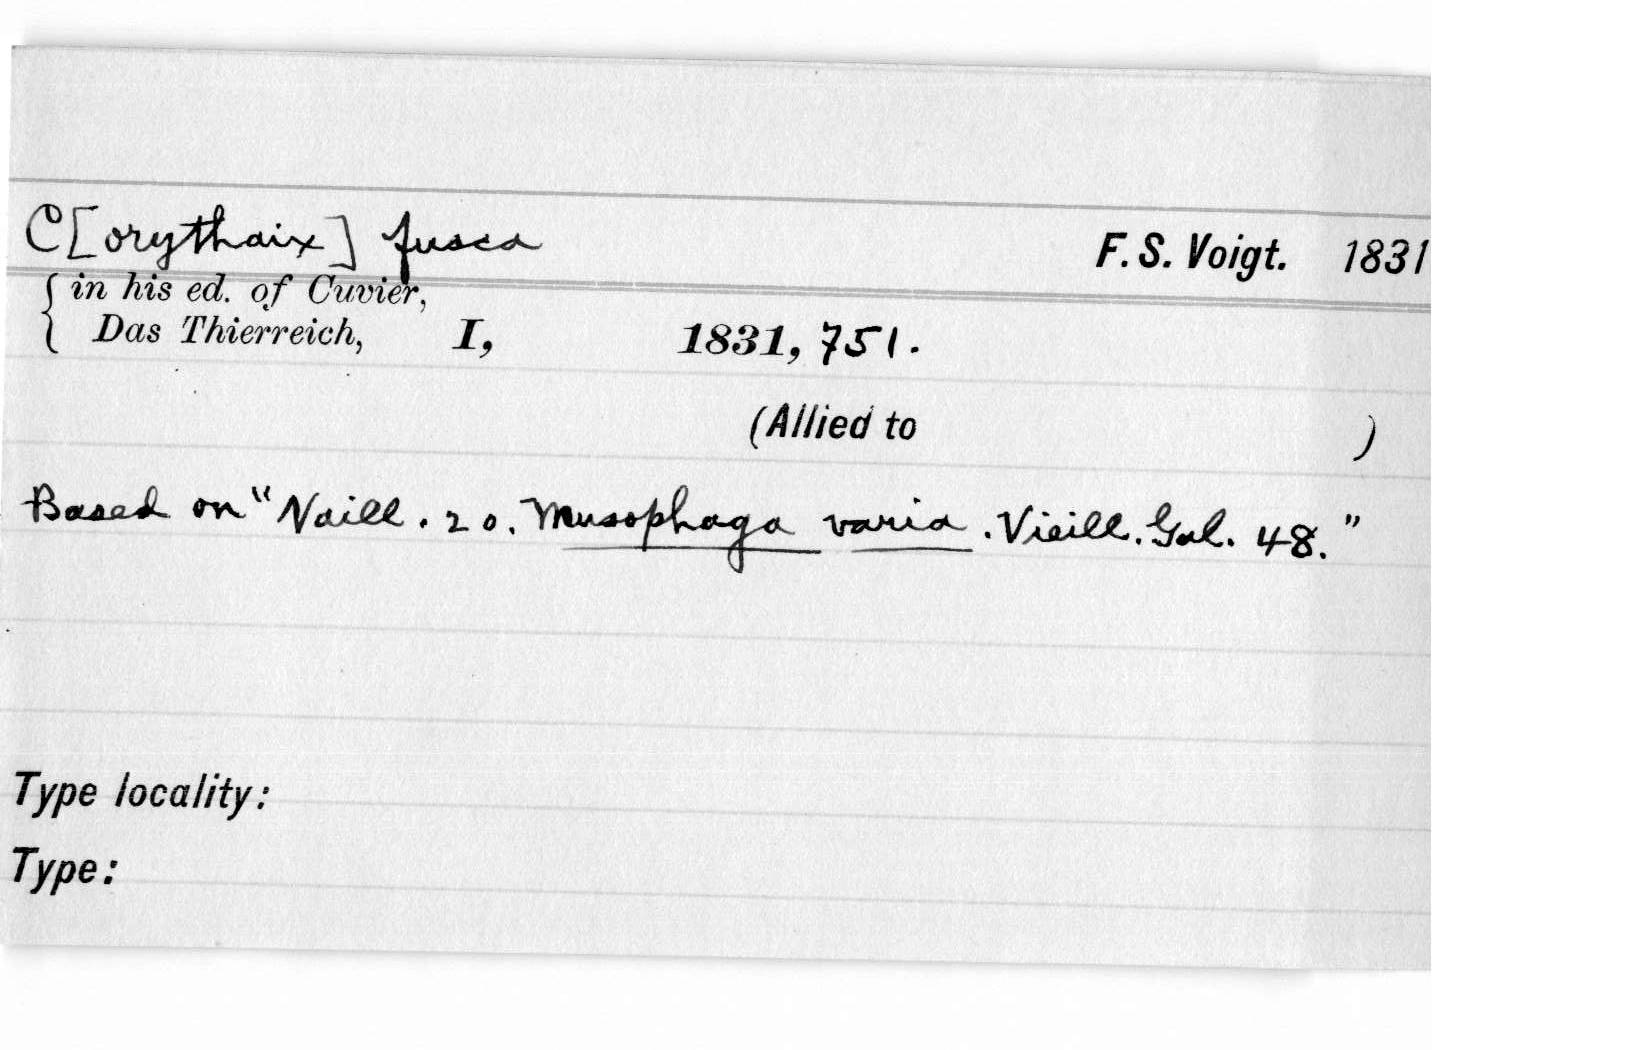 C[orythaix] fusca F. S. Voigt. 1831
{ in his ed. of Cuvier,
Das Thierreich, I, 1831, 751.
(Allied to )
Based on "Vaill. 20. Musophaga varia. Vieill. Gal. 48."
Type locality:
Type: